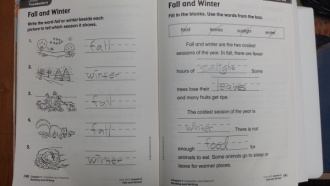 Fall and Winter
Write the word fall or winter beside each
picture to tell which season it shows.
1. fall
2. winter
3. fall
4. fall
5. winter
Fall and Winter
Fill in the blanks. Use the words from the box.
food leaves sunlight winter
Fall and winter are the two coolest
seasons of the year. In fall, there are fewer
hours of sunlight. Some
trees lose their leaves
and many fruits get ripe.
The coolest season of the year is
winter. There is not
enough food for
animals to eat. Some animals go to sleep or
leave for warmer places.